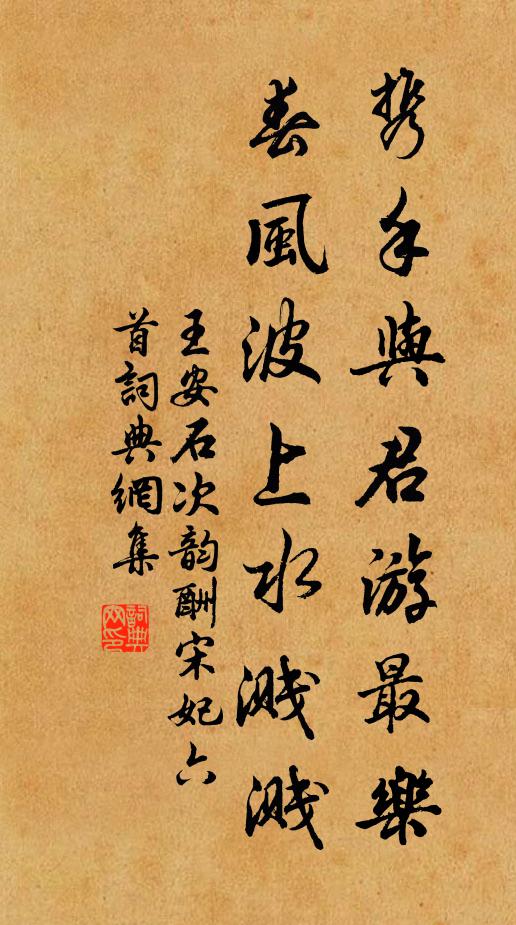 携手與君游最樂
春風波上水濺濺
王安石次韵酬宋妃六
首詞典網集
詞典
网印